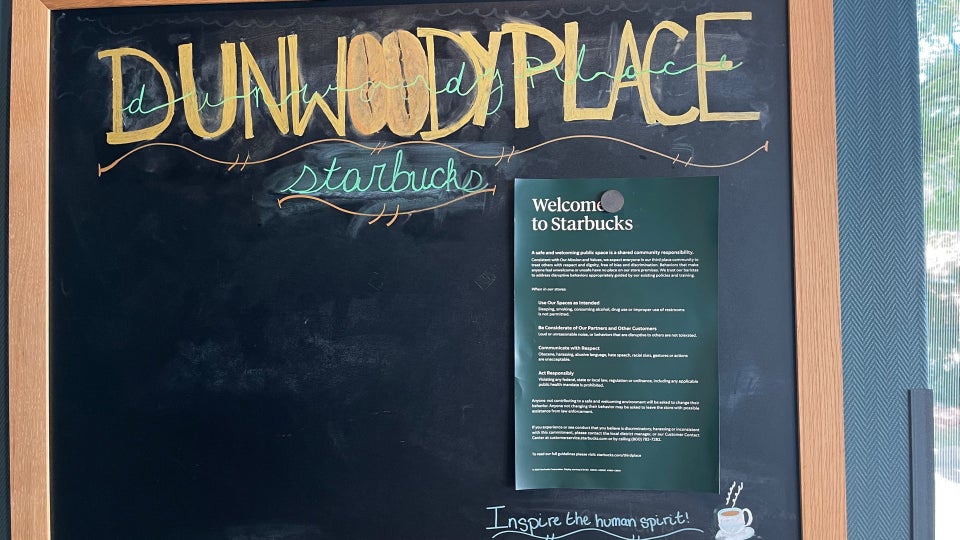 DUNWOODY PLACE
dunwoody place
starbucks
Welcome
to Starbucks
A safe and welcoming public space is a shared community responsibility.
Consistent with Our Mission and Values, we expect everyone in our third place community to
treat others with respect and dignity, free of bias and discrimination. Behaviors that make
anyone feel unwelcome or unsafe have no place on our store premises. We trust our baristas
to address disruptive behaviors appropriately guided by our existing policies and training.
When in our stores
Use Our Spaces as Intended
Sleeping, smoking, consuming alcohol, drug use or improper use of restrooms
is not permitted.
Be Considerate of Our Partners and Other Customers
Loud or unreasonable noise, or behaviors that are disruptive to others are not tolerated.
Communicate with Respect
Obscene, harassing, abusive language, hate speech, racial slurs, gestures or actions
are unacceptable.
Act Responsibly
Violating any federal, state or local law, regulation or ordinance, including any applicable
public health mandate is prohibited.
Anyone not contributing to a safe and welcoming environment will be asked to change their
behavior. Anyone not changing their behavior may be asked to leave the store with possible
assistance from law enforcement.
If you experience or see conduct that you believe is discriminatory, harassing or inconsistent
with this commitment, please contact the local district manager, or our Customer Contact
Center at customerservice.starbucks.com or by calling (800) 782-7282.
To read our full guidelines please visit: starbucks.com/thirdplace
Inspire the human spirit!